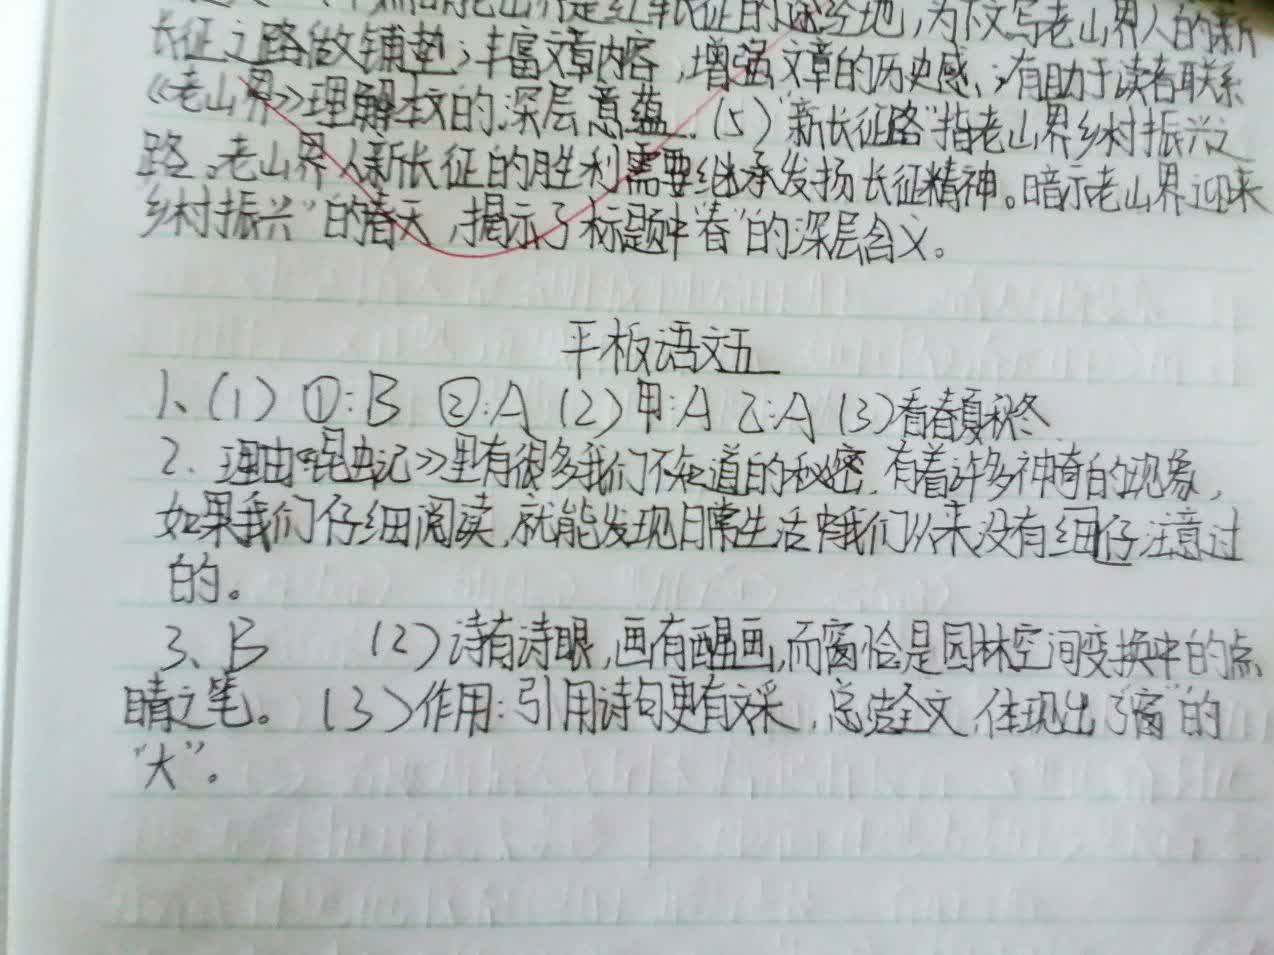 老山界是红军长征的途经地,为下文写老山界人的新
长征之路做铺垫;丰富文章内容,增强文章的历史感;有助于读者联系
《老山界》理解本文的深层意蕴.(5)"新长征路"指老山界乡村振兴之
路。老山界人新长征的胜利需要继承发扬长征精神。暗示老山界迎来
乡村振兴"的春天,揭示了标题中"春"的深层含义。
平板语文五
1、(1)①:B ②:A (2)甲:A 乙:A (3)看春夏秋冬
2. 理由:《昆虫记》里有很多我们不知道的秘密,有着许多神奇的现象,
如果我们仔细阅读,就能发现日常生活中我们从来没有细仔注意过
的。
3、B (2)诗有诗眼,画有醒画,而窗恰是园林空间变换中的点
睛之笔。(3)作用:引用诗句更有文采,总结全文,体现出了"窗"的
"大"。